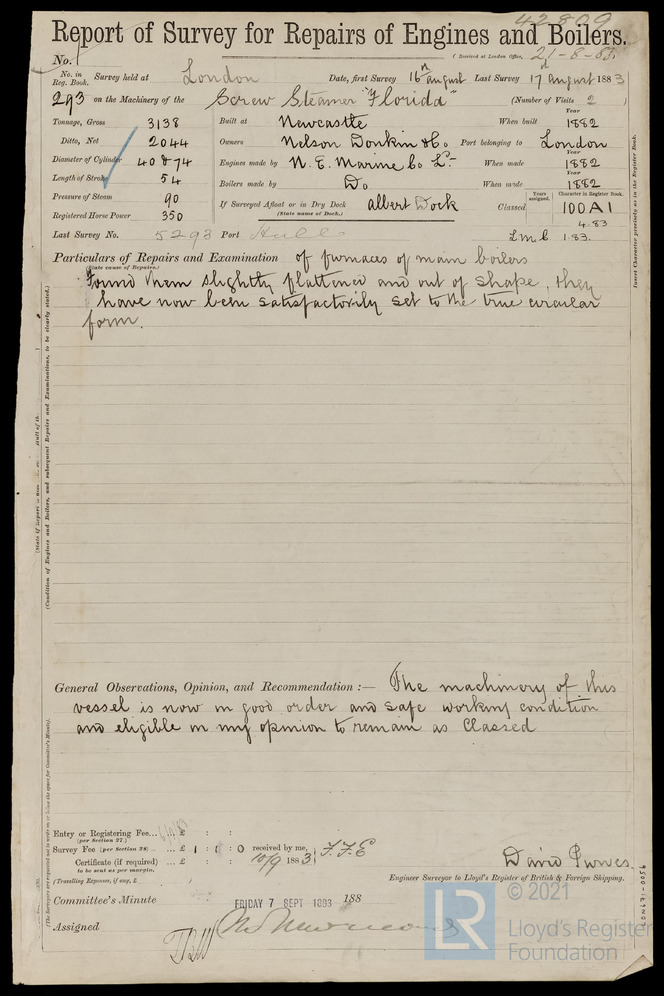 42809
Report of Survey for Repairs of Engines and Boilers.
No. (Received at London Office, 21-8-83
No. in Reg. Book. Survey held at London Date, first Survey 16th August Last Survey 17th August 1883
293 on the Machinery of the Screw Steamer "Florida" (Number of Visits 2 )
Tonnage, Gross 3138 Built at Newcastle When built Year 1882
Ditto, Net 2044 Owners Nelson Donkin & Co. Port belonging to London
Diameter of Cylinder 40 & 74 Engines made by N. E. Marine Co Ld When made Year 1882
Length of Stroke 54 Boilers made by Do When made Year 1882
Pressure of Steam 90 If Surveyed Afloat or in Dry Dock Albert Dock Classed Years assigned. Character in Register Book. 100A1
Registered Horse Power 350 (State name of Dock.) 4.83
Last Survey No. 5293 Port Hull L.M.C. 1.83.
Particulars of Repairs and Examination of furnaces of main boilers
(State cause of Repairs.)
Found them slightly flattened and out of shape, they
have now been satisfactorily set to the true circular
form.
Insert Character precisely as in the Register Book.
(Condition of Engines and Boilers, and subsequent Repairs and Examinations, to be clearly stated.)
General Observations, Opinion, and Recommendation :— The machinery of this
vessel is now in good order and safe working condition
and eligible in my opinion to remain as Classed
Entry or Registering Fee... £ : :
(per Section 27.)
Survey Fee (per Section 28) ... £ 1 : 1 : 0 received by me, F.F.E
Certificate (if required) ... £ : : 10/9 1883
to be sent as per margin.
(Travelling Expenses, if any, £
David Purves.
Engineer Surveyor to Lloyd's Register of British & Foreign Shipping.
Committee's Minute FRIDAY 7 SEPT 1883 188
Assigned
LR
© 2021
Lloyd's Register
Foundation